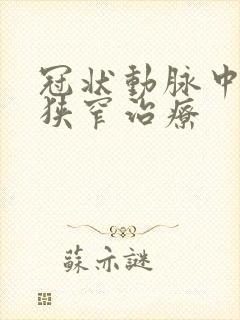 冠狀動脉中
狹窄治療
蘇亦謎